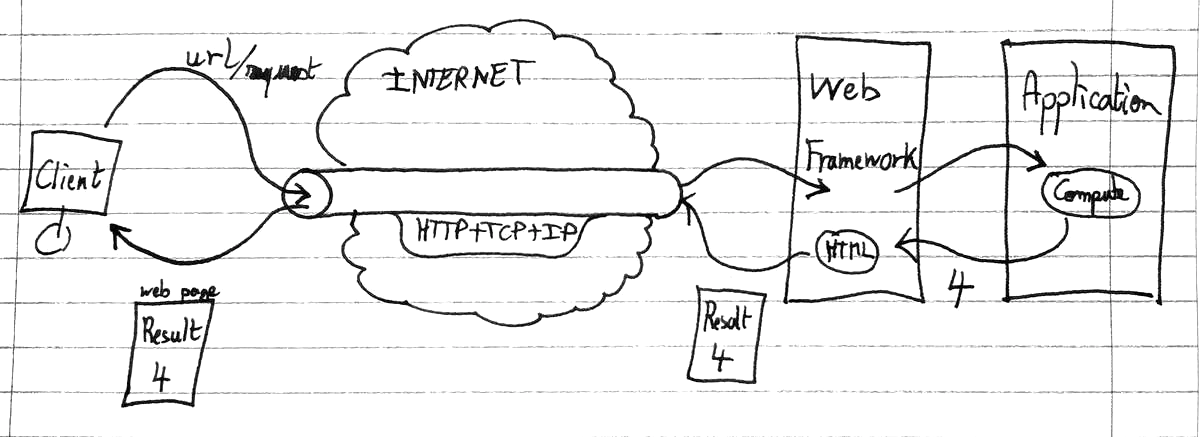 url/request
INTERNET
Web
Framework
Application
Client
Compute
HTTP+TCP+IP
HTML
4
web page
Result
4
Result
4